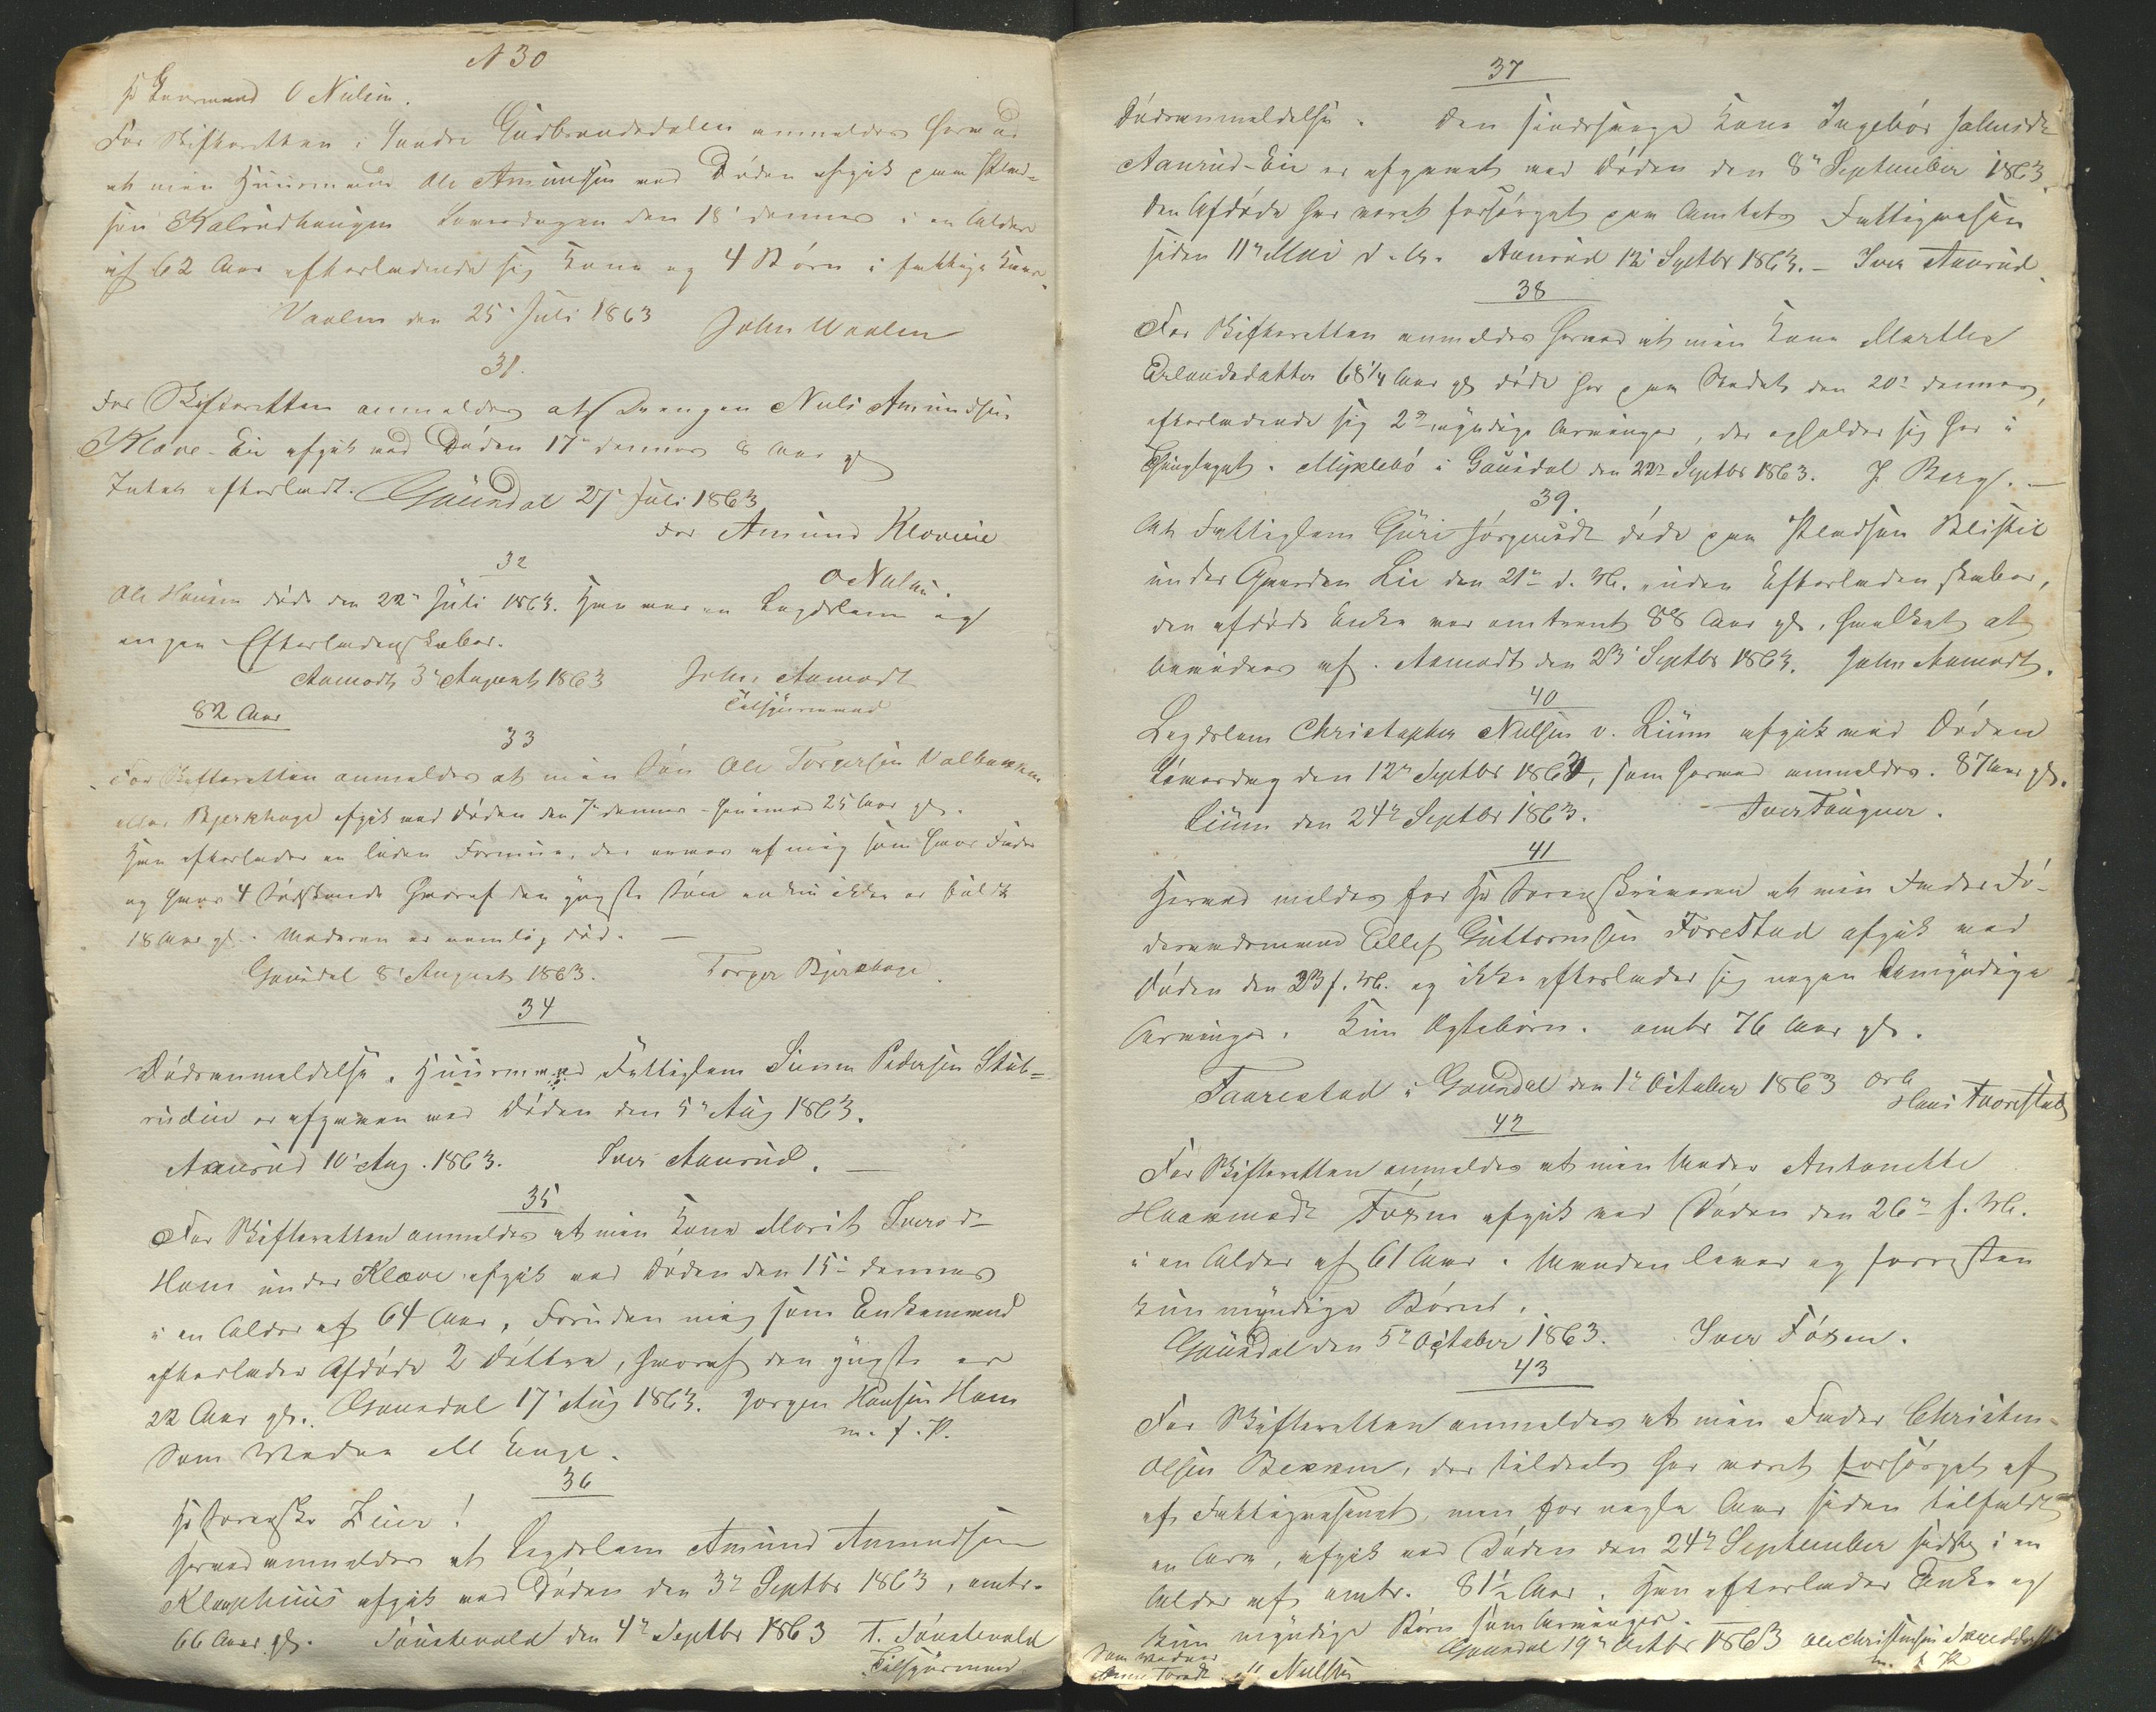 N 30
Hr Leensmand O Nielsen.
For Skifteretten i Søndre Gudbrandsdalen anmeldes herved
at min Huusmand Ole Amundsen ved Døden afgik paa Plad-
sen Kalrudhaugen Løverdagen den 18' dennes i en Alder
af 62 Aar efterladende sig Kone og 4 Børn i fattige Kaar.
Vaalen den 25' Juli 1863 John Vaalen
31.
For Skifteretten anmeldes at Drengen Niels Amundsen
Klæve-Eie afgik ved Døden 17' dennes 8 Aar gl
Intet efterladt. Gausdal 27' Juli 1863
for Amund Kloveeie
O Nielsen.
32
Ole Hausen døde den 22' Juli 1863. Han var en Lægdslem og
ingen Efterladenskaber.
Aamodt 3' August 1863 John Aamodt
82 Aar Tilsynsmand
33
For Skifteretten anmeldes at min Søn Ole Torgersen Valbakken
eller Bjerkhage afgik ved Døden den 7' dennes - henimod 25 Aar gl.
Han efterlader en liden Formue, der arves af mig som hans Fader
og hans 4 Sødskende hvoraf den yngste Søn endnu ikke er fuldt
18 Aar gl. Moderen er nemlig død. —
Gausdal 8' August 1863. Torger Bjerkhage.
34
Dødsanmeldelse. Huusmand Fattiglem Simen Pedersen Stub-
rudeie er afgaaen ved Døden den 5' Aug 1863.
Aanrud 10' Aug. 1863. Iver Aanrud. —
35
For Skifteretten anmeldes at min Kone Marit Iversd-
Hom under Klæve afgik ved Døden den 15' dennes
i en Alder af 64 Aar, Foruden mig som Enkemand
efterlader Afdøde 2 Døttre, hvoraf den yngste er
22 Aar gl. Gausdal 17' Aug 1863. Jørgen Hansen Hom
m. f. P.
Som Vedne M Enge.
36
Hr Sorenskr Zeier!
Herved anmeldes at Lægdslem Amund Amundsen
Klæphuus afgik ved Døden den 3' Septbr 1863, omtr.
66 Aar gl. Tøustevold den 4' Septbr 1863 T. Tøustevold
Tilsynsmand
37
Dødsanmeldelse. Den sindssvage Kone Ingebor Johnsdr
Aanrud-Eie er afgaaet ved Døden den 8' September 1863.
Den Afdøde har været forsørget paa Amtets Fattigvæsen
siden 11' Mai d. A. Aanrud 12' Septbr 1863. — Iver Aanrud.
38
For Skifteretten anmeldes herved at min Kone Marthe
Erlandsdatter 68¼ Aar gl døde her paa Stedet den 20' dennes,
efterladende sig 2 myndige Arvinger, der opholder sig her i
Thinglaget. Myklebö i Gausdal den 22' Septbr 1863. J Berg. —
39.
At Fattiglem Guri Jørgensdt døde paa Pladsen Blistil
under Gaarden Lie den 21' d. M. uden Efterladenskaber,
den afdøde Enke var omtrent 88 Aar gl, hvilket at
bevidnes af. Aamodt den 23' Septbr 1863. John Aamodt.
40
Lægdslem Christopher Nielsen v. Liium afgik ved Døden
Løverdag den 12' Septbr 1863, som herved anmeldes. 87 Aar gl.
Liium den 24' Septbr 1863. Iver Faugner.
41
Herved meldes for Hr Sorenskriveren at min Fader Fø-
deraadsmand Ellef Guttormsen Forestad afgik ved
Døden den 23 f. M. og ikke efterlader sig nogen Umyndige
Arvinger. Kun Ægtebørn. omtr 76 Aar gl.
Faarestad i Gausdal den 1' October 1863 Erb
Hans Faarestad
42
For Skifteretten anmeldes at min Moder Antonette
Haakensdr Foxen afgik ved Døden den 26' f. M.
i en Alder af 61 Aar. Manden lever og forresten
kun myndige Børn.
Gausdal den 5' October 1863. Iver Föxen.
43
For Skifteretten anmeldes at min Fader Christen
Olsen Bekken, der tildeels har været forsørget af
af Fattigvæsenet, men for nogle Aar siden tilfaldt
en Arv, afgik ved Døden den 24' September sidst i en
Alder af omtr. 81½ Aar. Han efterlader Enke og
kun myndige Børn som Arvinger.
Gausdal 19' Octbr 1863 Ole Christensen
m. f. P.
Som Vedner
M Nielsen